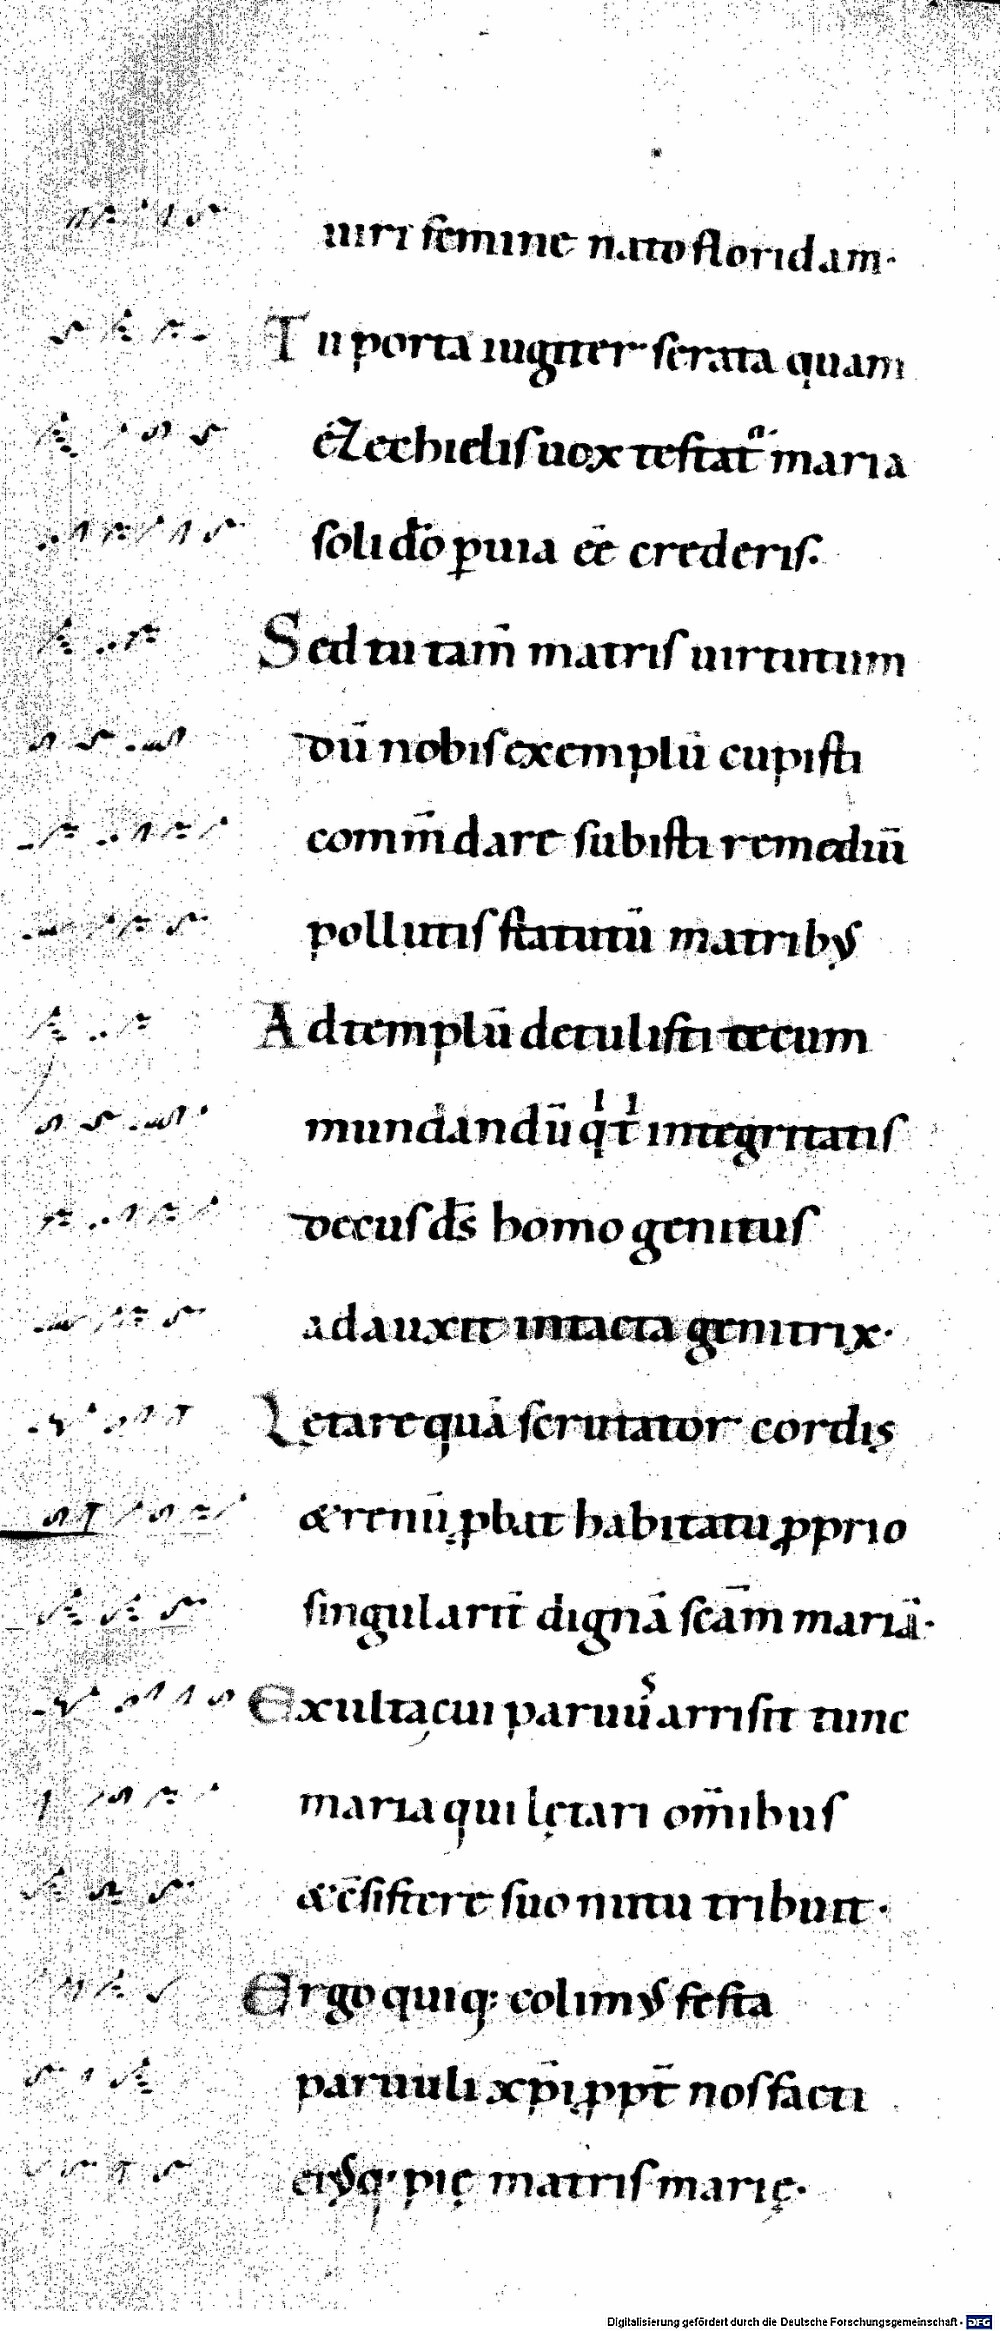 uiri femine nato floridam·
Tu porta iugiter serata quam
ezechielis uox testat᷑ maria
soli dō ꝑuia eē crederis.
Sed tu tam̄ matris uirtutum
dū nobis exemplū cupisti
comm̄dare subisti remediū
pollutis statutū matribꝰ
Ad templū detulisti tecum
mundandū qͥ tͥ integritatis
decus ds̄ homo genitus
adauxit intacta genitrix·
Lętare quā scrutator cordis
& renū ꝓbat habitatu ꝓprio
singularit̄ dignā scām mariā·
Exulta cui paruuˢ arrisit tunc
maria qui lętari om̄ibus
& c̄sistere suo nutu tribuit·
Ergo quiq; colimꝰ festa
paruuli xp̄i ꝓpt̄ nos facti
eiꝰq· pię matris marię·
Digitalisierung gefördert durch die Deutsche Forschungsgemeinschaft - DFG